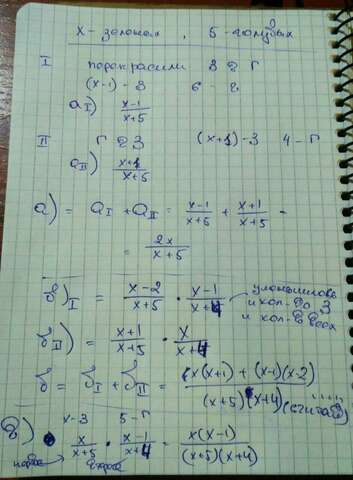 x - зеленая , 5 - голубых
I перекрасили З в Г
(x-1) - З 6 - Г
a I) \frac{x-1}{x+5}
II Г в З (x+1) - З 4 - Г
a II) \frac{x+1}{x+5}
a) = a_I + a_{II} = \frac{x-1}{x+5} + \frac{x+1}{x+5} =
= \frac{2x}{x+5}
б)_I = \frac{x-2}{x+5} \cdot \frac{x-1}{x+4} уменьшилось
и кол-во З
и кол-во всех
б_{II}) = \frac{x+1}{x+5} \cdot \frac{x}{x+4}
б = б_I + б_{II} = \frac{x(x+1) + (x-1)(x-2)}{(x+5)(x+4)}
x-З 5-Г
в) \frac{x}{x+5} \cdot \frac{x-1}{x+4} = \frac{x(x-1)}{(x+5)(x+4)}
первая вторая